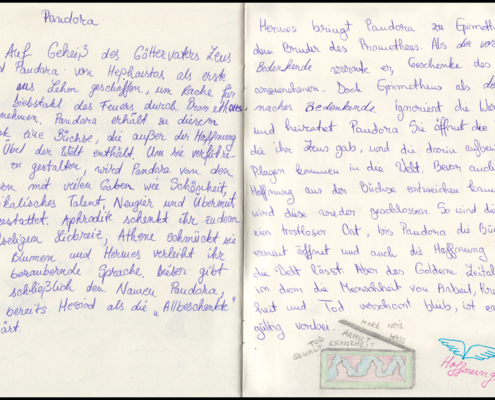 Pandora
Auf Geheiß des Göttervaters Zeus
Pandora von Hephaistos als erste
aus Lehm geschaffen, um Rache für
Diebstahl des Feuers durch Prometheus
nehmen. Pandora erhält zu diesem
eine Büchse, die außer der Hoffnung
Übel der Welt enthält. Um sie verführe-
zu gestalten, wird Pandora von den
mit vielen Gaben wie Schönheit,
kalisches Talent, Neugier und Übermut
gestattet. Aphrodite schenkt ihr zudem
seligen Liebreiz, Athene schmückt sie
Blumen und Hermes verleiht ihr
bezaubernde Sprache. gibt
schließlich den Namen Pandora,
bereits Hesiod als die „Allbeschenkte“
ärt.
Hermes bringt Pandora zu Epimethe
dem Bruder des Prometheus. Als der vor
Bedenkende warnte er, Geschenke des
anzunehmen. Doch Epimetheus als de
nacher Bedenkende ignoriert die Wa
und heiratet Pandora. Sie öffnet die
die ihr Zeus gab, und die darin aufbew
Plagen kommen in die Welt. Bevor auch
Hoffnung aus der Büchse entweichen kann
wird diese wieder geschlossen. So wird die
ein trostloser Ort, bis Pandora die Büc
erneut öffnet und auch die Hoffnung
die Welt lässt. Aber das Goldene Zeital
in dem die Menschheit von Arbeit, Kra
heit und Tod verschont blieb, ist en
gültig vorbei.
TOD
GEWALT
ARMUT
KRANKHEIT
NEID
HASS
Hoffnung